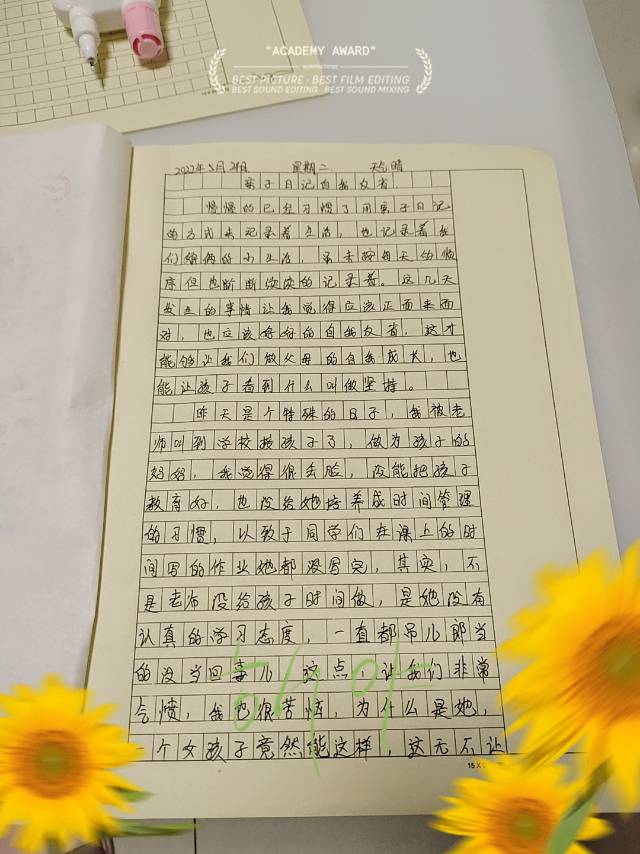 "ACADEMY AWARD"
NOMINATIONS
BEST PICTURE · BEST FILM EDITING
BEST SOUND EDITING · BEST SOUND MIXING
2022年5月24日 星期二 天气晴
亲子日记自我反省.
慢慢的已经习惯了用亲子日记
的方式来记录着生活,也记录着我
们娘俩的小生活,虽未按每天的顺
序但也断断续续的记录着。这几天
发生的事情让我觉得应该正面来面
对,也应该好好的自我反省,这才
能够让我们做父母的自我成长,也
能让孩子看到什么叫做坚持。
昨天是个特殊的日子,我被老
师叫到学校接孩子了,做为孩子的
妈妈,我觉得很丢脸,没能把孩子
教育好,也没给她培养成时间管理
的习惯,以致于同学们在课上的时
间写的作业她都没写完,其实,不
是老师没给孩子时间做,是她没有
认真的学习态度,一直都吊儿郎当
的没当回事儿,这点,让我们非常
气愤,我也很苦恼,为什么是她,
一个女孩子竟然能这样,这无不让
15 X